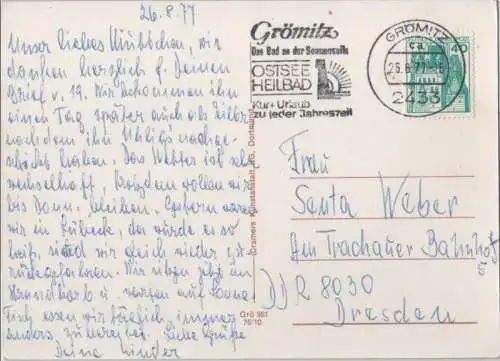 26.8.77
Unser liebes Muttchen, wir
danken herzlich f. Deinen
Brief v. 19. Wir bekommen ihn
einen Tag später auch als
nachdem ihn
haben. Das Wetter ist sehr
wechselhaft, trotzdem wollen wir
bis Donn. bleiben. Gestern waren
wir in Lübeck, da wurde es so
heiß, sind wir gleich wieder zu-
rückgefahren. Wir liegen jetzt im
Strandkorb u. warten auf Sonne.
Tisch essen wir täglich, immer
anders zubereitet. Liebe Grüße
Deine Kinder
Grömitz
Das Bad an der Sonnenseite
OSTSEE
HEILBAD
Kur + Urlaub
zu jeder Jahreszeit
GRÖMITZ
ca
26.8.77
2433
40
Cramers Kunstanstalt KG, Dortmund
Grö 981
76/10
Frau
Senta Weber
Am Trachauer Bahnhof
DDR 8030
Dresden